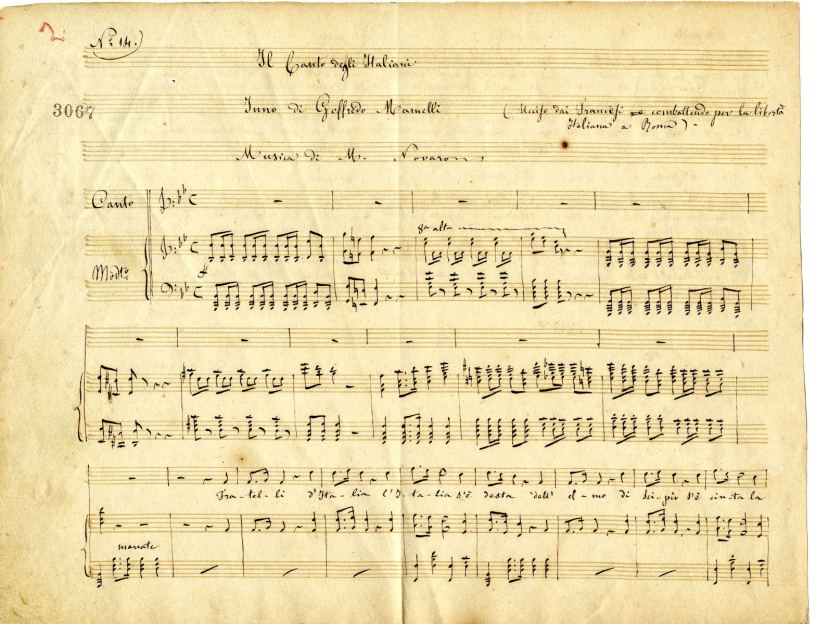 Nº 14.
Il Canto degli Italiani
3067
Inno di Goffredo Mamelli (Ucciso dai Francesi combattendo per la libertà
Italiana a Roma)
Musica di M. Novaro
Canto
8a alta
Modto
Fra-tel-li d'Ita-lia l'I-ta-lia s'è desta dell' el-mo di Sci-pio s'è cin-ta la
marcate